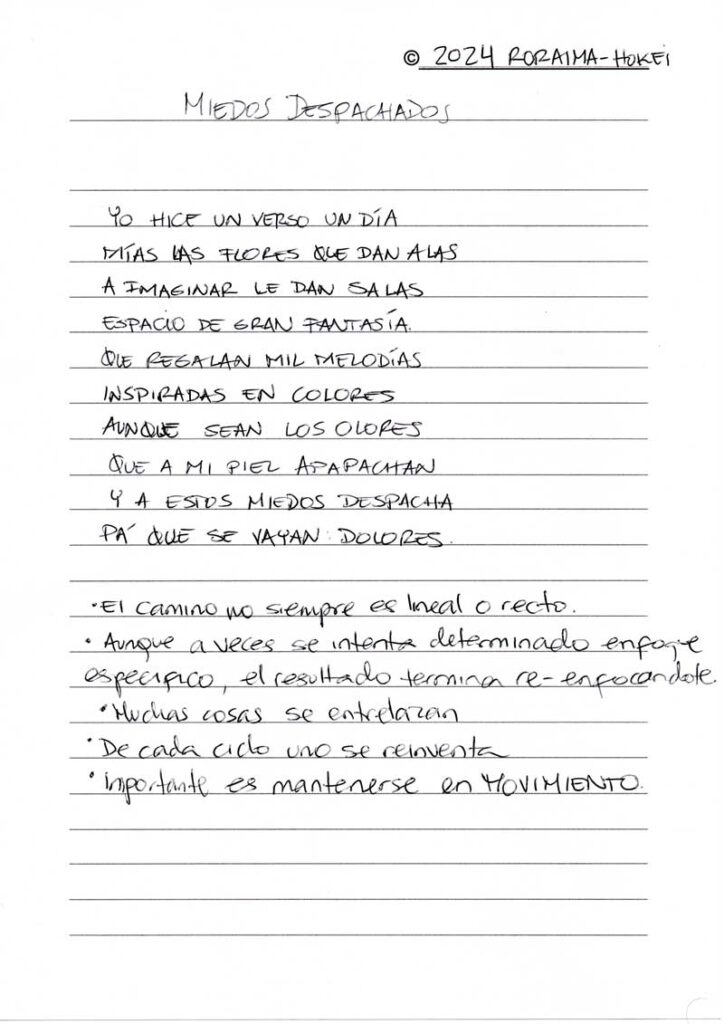 © 2024 RORAIMA-HOKEI
MIEDOS DESPACHADOS
YO HICE UN VERSO UN DÍA
MÍAS LAS FLORES QUE DAN ALAS
A IMAGINAR LE DAN SALAS
ESPACIO DE GRAN FANTASÍA.
QUE REGALAN MIL MELODÍAS
INSPIRADAS EN COLORES
AUNQUE SEAN LOS OLORES
QUE A MI PIEL APAPACHAN
Y A ESTOS MIEDOS DESPACHA
PA' QUE SE VAYAN DOLORES.
• El camino no siempre es lineal o recto.
• Aunque a veces se intenta determinado enfoque
específico, el resultado termina re-enfocandote.
• Muchas cosas se entrelazan
• De cada ciclo uno se reinventa
• importante es mantenerse en MOVIMIENTO.